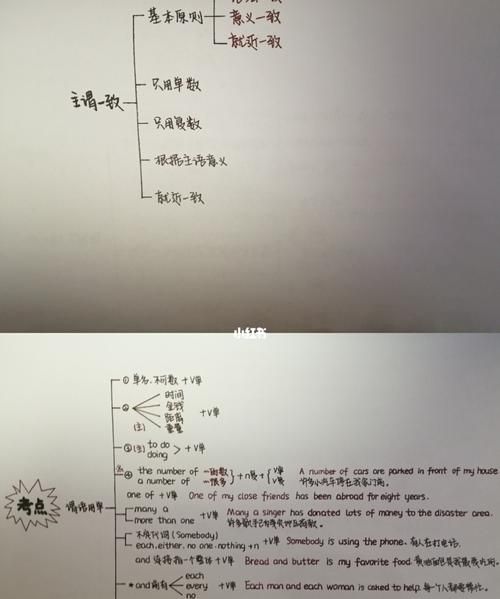 基本原则
意义一致
就近一致
主谓一致
只用单数
只用复数
根据主语意义
就近一致
小红书
① 单名.不可数 +V单
② 时间
金钱
距离
(主) 重量
+V单
③ (主) to do
doing > +V单
④ the number of 一的数
a number of 一很多
+n复+ V单
V复
A number of cars are parked in front of my house
许多小汽车停在我家门前。
one of +V单 One of my close friends has been abroad for eight years.
考点
谓语用单
many a
more than one
+V单 Many a singer has donated lots of money to the disaster area.
不定代词 (Somebody)
each. either. no one. nothing + n
+V单 Somebody is using the phone. 有人在打电话.
and 连接指一个整体 +V单 Bread and butter is my favorite food.
*and 前有 each
every
no
+V单 Each man and each woman is asked to help.